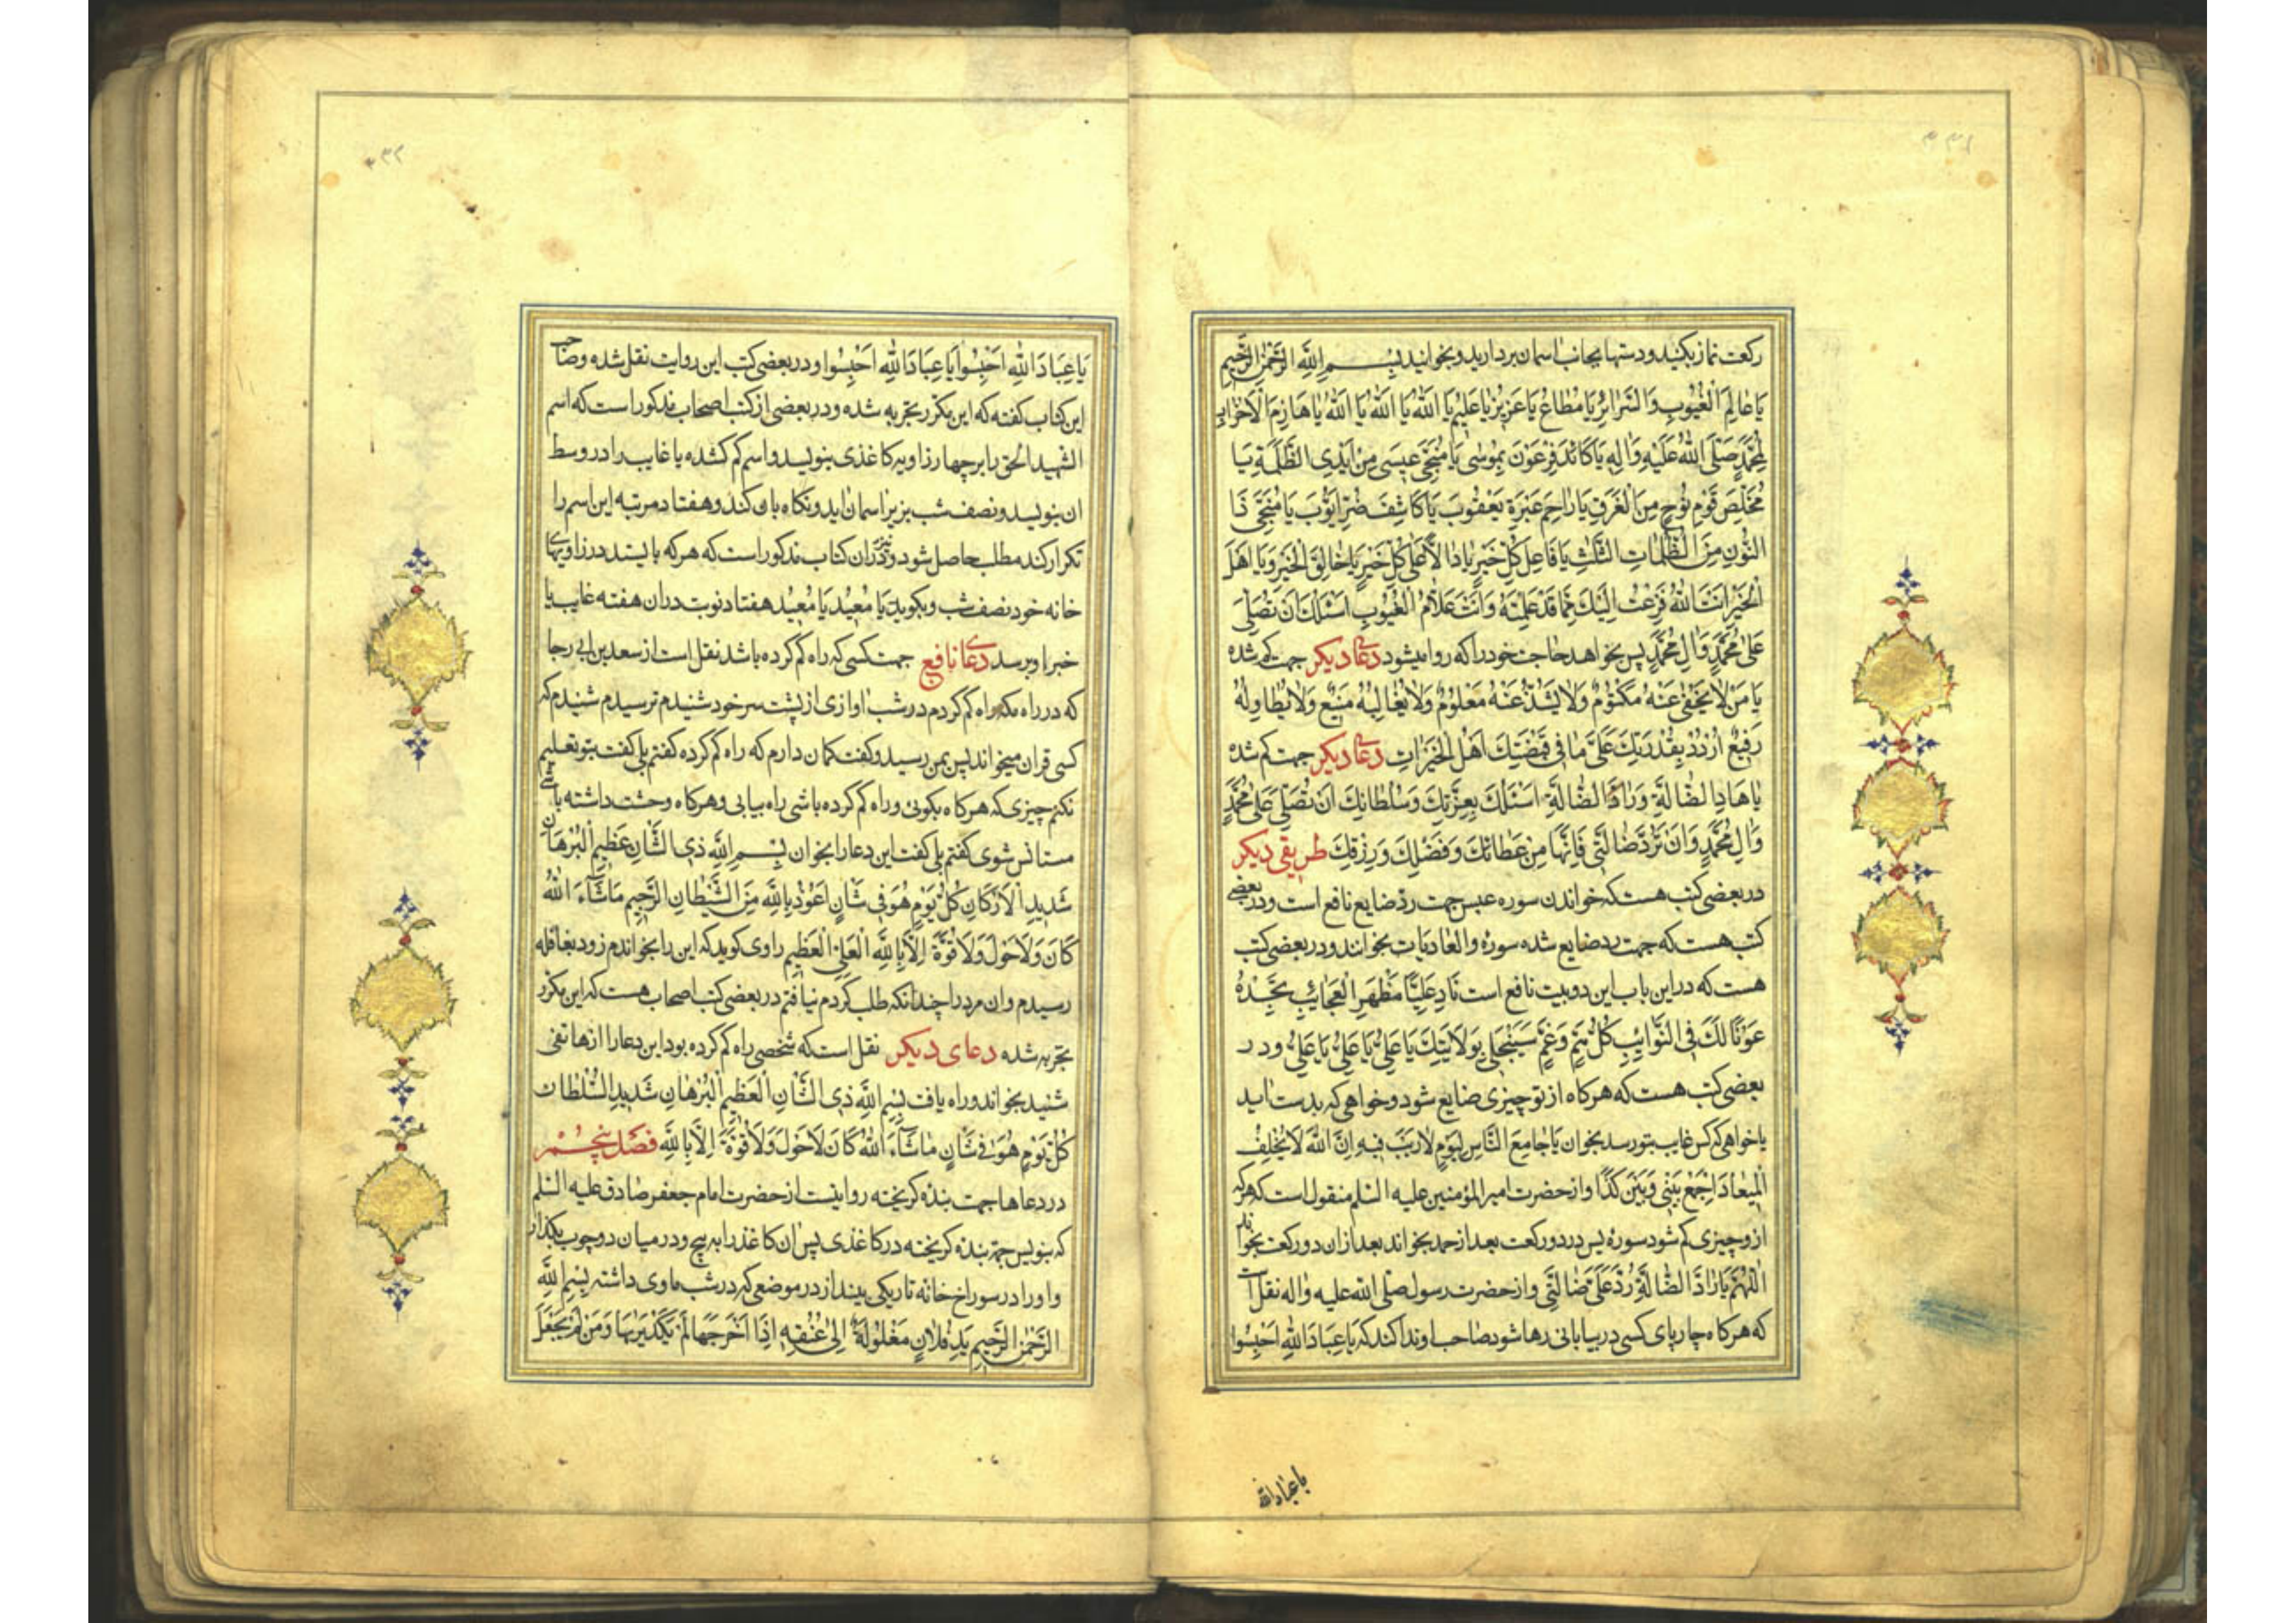 ۳۳۱
رکعت نماز بکنید و دستها بجانب اسمان بردارید و بخوانید بِسْمِ اللهِ الرَّحْمٰنِ الرَّحیمِ
یَا عَالِمَ الْغُیُوبِ وَالسَّرَائِرِ یَا مُطَاعُ یَا عَزِیزُ یَا عَلِیمُ یَا اَللهُ یَا اَللهُ یَا اَللهُ یَا هَازِمَ الْاَحْزَابِ
لِمُحَمَّدٍ صَلَّی اللهُ عَلَیْهِ وَاٰلِهِ یَا کَائِدَ فِرْعَوْنَ بِمُوسٰی یَا مُنَجِّیَ عِیسٰی مِنْ اَیْدِی الظَّلَمَةِ یَا
مُخَلِّصَ قَوْمِ نُوحٍ مِنَ الْغَرَقِ یَا رَاحِمَ عَبْرَةِ یَعْقُوبَ یَا کَاشِفَ ضُرِّ اَیُّوبَ یَا مُنَجِّیَ ذَا
النُّونِ مِنَ الظُّلُمَاتِ الثَّلٰثِ یَا فَاعِلَ کُلِّ خَیْرٍ یَا دَالًّا عَلٰی کُلِّ خَیْرٍ یَا خَالِقَ الْخَیْرِ وَیَا اَهْلَ
الْخَیْرِ اَنْتَ اللهُ فَزِعْتُ اِلَیْکَ مِمَّا قَدْ عَلِمْتَهُ وَاَنْتَ عَلَّامُ الْغُیُوبِ اَسْئَلُکَ اَنْ تُصَلِّیَ
عَلٰی مُحَمَّدٍ وَاٰلِ مُحَمَّدٍ پس بخواهد حاجت خود را که روا میشود دعای دیکر جهت کم شده
یَا مَنْ لَا یَخْفٰی عَنْهُ مَکْتُومٌ وَلَا یَشُذُّ عَنْهُ مَعْلُومٌ وَلَا یُغَالِبُهُ مَنِیعٌ وَلَا یُطَاوِلُهُ
رَفِیعٌ اُرْدُدْ بِقُدْرَتِکَ عَلَیَّ مَا فِی قَبْضَتِکَ اَهْلَ الْخَیْرَاتِ دعای دیکر جهت کم شده
یَا هَادِ الضَّالَّةِ وَرَادَّ الضَّالَّةِ اَسْئَلُکَ بِعِزَّتِکَ وَسُلْطَانِکَ اَنْ تُصَلِّیَ عَلٰی مُحَمَّدٍ
وَاٰلِ مُحَمَّدٍ وَاَنْ تَرُدَّ ضَالَّتِی فَاِنَّهَا مِنْ عَطَائِکَ وَفَضْلِکَ وَرِزْقِکَ طریقی دیکر
در بعضی کتب هست که خواندن سوره عبس جهت رد ضایع نافع است و در بعضی
کتب هست که جهت رد ضایع شده سورهٔ والعادیات بخوانند و در بعضی کتب
هست که در این باب این دو بیت نافع است نَادِ عَلِیًّا مَظْهَرَ الْعَجَائِبِ تَجِدْهُ
عَوْنًا لَکَ فِی النَّوَائِبِ کُلُّ هَمٍّ وَغَمٍّ سَیَنْجَلِی بِوَلَایَتِکَ یَا عَلِیُّ یَا عَلِیُّ یَا عَلِیُّ و در
بعضی کتب هست که هرکاه از تو چیزی ضایع شود و خواهی که بدست اید
یا خواهی که کس غایب بتو رسد بخوان یَا جَامِعَ النَّاسِ لِیَوْمٍ لَا رَیْبَ فِیهِ اِنَّ اللهَ لَا یُخْلِفُ
الْمِیعَادَ اِجْمَعْ بَیْنِی وَبَیْنَ کَذَا و از حضرت امیرالمؤمنین علیه السلم منقول است که هرکه
از و چیزی کم شود سورهٔ یس در دو رکعت بعد از حمد بخواند بعد از ان دو رکعت بخواند
اَللّٰهُمَّ یَا رَادَّ الضَّالَّةِ رُدَّ عَلَیَّ ضَالَّتِی و از حضرت رسول صلی الله علیه و اله نقل است
که هرکاه چارپای کسی در بیابانی رها شود صاحب او ندا کند که یَا عِبَادَ اللهِ اَحْبِسُوا
یا عباد الله
۳۳۲
یَا عِبَادَ اللهِ اَحْبِسُوا یَا عِبَادَ اللهِ اَحْبِسُوا و در بعضی کتب این روایت نقل شده و صاحب
این کتاب کفته که این مکرر بتجربه شده و در بعضی از کتب اصحاب مذکور است که اسم
الشهید الحق را بر چهار زاویه کاغذی بنویسد و اسم کم کشده یا غایب را در وسط
ان بنویسد و نصف شب بزیر اسمان اید و نکاه بان کند و هفتاد مرتبه این اسم را
تکرار کند مطلب حاصل شود و نیز در ان کتاب مذکور است که هرکه بایستد در زاویهای
خانه خود نصف شب و بکوید یَا مُعِیدُ یَا مُعِیدُ هفتاد نوبت در ان هفته غایب یا
خبر او برسد دعای نافع جهت کسی که راه کم کرده باشد نقل است از سعد بن ابی رجا
که در راه مکه راه کم کردم در شب اوازی از پشت سر خود شنیدم ترسیدم شنیدم که
کسی قران میخواند پس بمن رسید و کفت کمان دارم که راه کم کرده کفتم بلی کفت بتو تعلیم
نکنم چیزی که هرکاه بکوئی و راه کم کرده باشی راه بیابی و هرکاه وحشت داشته باشی
مستانس شوی کفتم بلی کفت این دعا را بخوان بِسْمِ اللهِ ذِی الشَّانِ عَظِیمِ الْبُرْهَانِ
شَدِیدِ الْاَرْکَانِ کُلَّ یَوْمٍ هُوَ فِی شَانٍ اَعُوذُ بِاللهِ مِنَ الشَّیْطَانِ الرَّجِیمِ مَاشَآءَ اللهُ
کَانَ وَلَا حَوْلَ وَلَا قُوَّةَ اِلَّا بِاللهِ الْعَلِیِّ الْعَظِیمِ راوی کوید که این را بخواندم زود بقافله
رسیدم و ان مرد را چندانکه طلب کردم نیافتم در بعضی کتب اصحاب هست که این مکرر
بتجربه شده دعای دیکر نقل است که شخصی راه کم کرده بود این دعا را از هاتفی
شنید بخواند و راه یافت بِسْمِ اللهِ ذِی الشَّانِ الْعَظِیمِ الْبُرْهَانِ شَدِیدِ السُّلْطَانِ
کُلَّ یَوْمٍ هُوَ فِی شَانٍ مَاشَآءَ اللهُ کَانَ لَا حَوْلَ وَلَا قُوَّةَ اِلَّا بِاللهِ فصل پنجم
در دعاها جهت بنده کریخته روایتست از حضرت امام جعفر صادق علیه السلم
که بنویس جهة بنده کریخته در کاغذی پس ان کاغذ را به پیچ و در میان دو چوب بکذار
و او را در سوراخ خانه تاریکی بینداز در موضعی که در شب ماوی داشته بِسْمِ اللهِ
الرَّحْمٰنِ الرَّحِیمِ یَدُ فُلَانٍ مَغْلُولَةٌ اِلٰی عُنُقِهِ اِذَا اَخْرَجَهَا لَمْ یَکَدْ یَرٰیهَا وَمَنْ لَمْ یَجْعَلِ